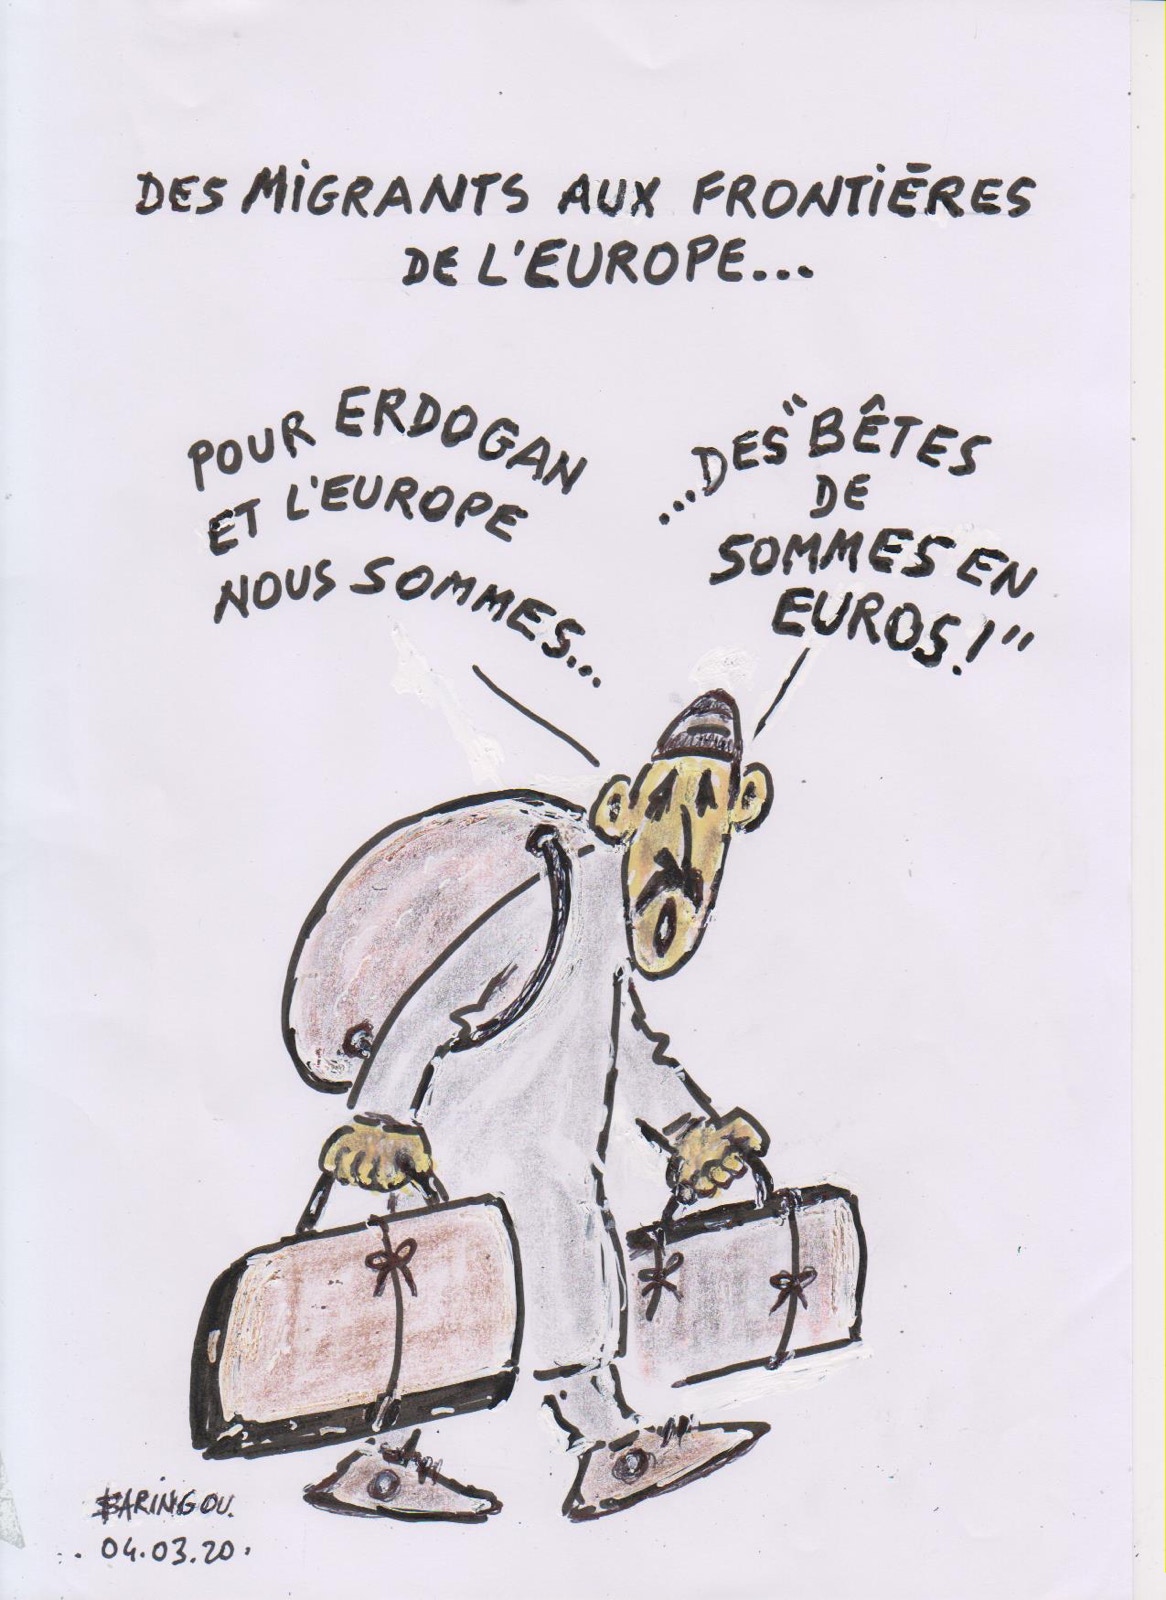 DES MiGRANTS AUX FRONTiÈRES
DE L'EUROPE...
POUR ERDOGAN
ET L'EUROPE
NOUS SOMMES...
...DES "BÊTES
DE
SOMMES EN
EUROS!"
BARiNGOU.
04.03.20.